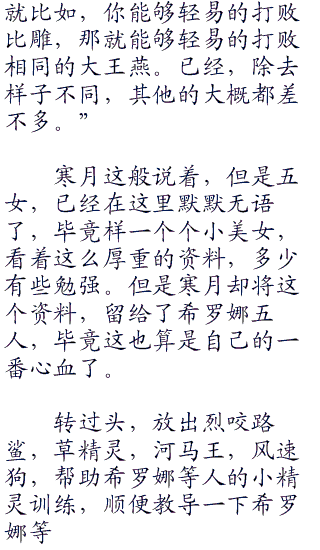 就比如，你能够轻易的打败
比雕，那就能够轻易的打败
相同的大王燕。已经，除去
样子不同，其他的大概都差
不多。”
寒月这般说着，但是五
女，已经在这里默默无语
了，毕竟样一个个小美女，
看着这么厚重的资料，多少
有些勉强。但是寒月却将这
个资料，留给了希罗娜五
人，毕竟这也算是自己的一
番心血了。
转过头，放出烈咬路
鲨，草精灵，河马王，风速
狗，帮助希罗娜等人的小精
灵训练，顺便教导一下希罗
娜等